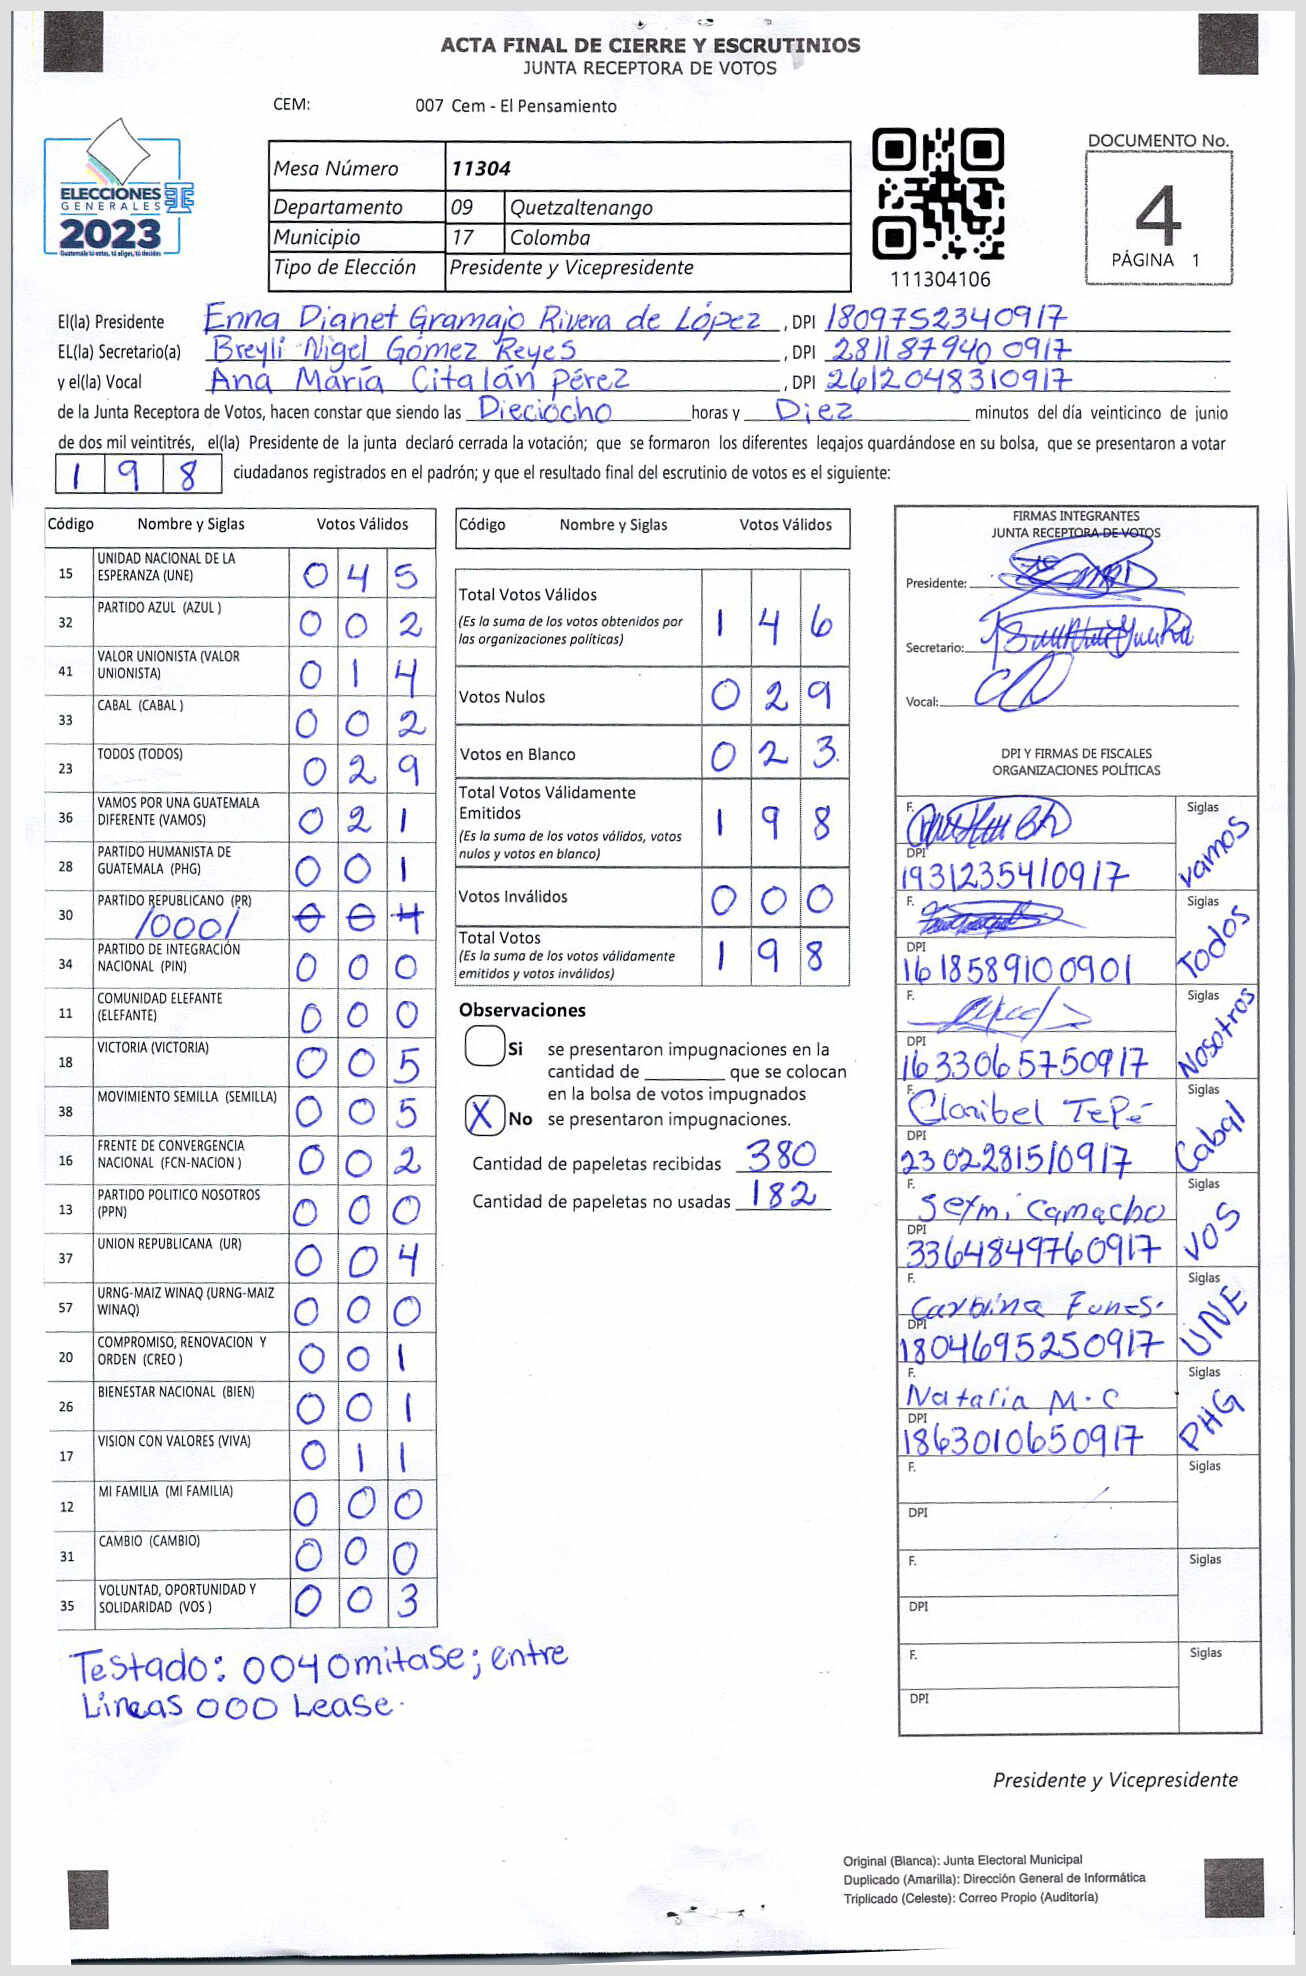 ACTA FINAL DE CIERRE Y ESCRUTINIOS
JUNTA RECEPTORA DE VOTOS
CEM: 007 Cem - El Pensamiento
ELECCIONES
GENERALES
2023
Guatemala tú votas, tú eliges, tú decides
Mesa Número 11304
Departamento 09 Quetzaltenango
Municipio 17 Colomba
Tipo de Elección Presidente y Vicepresidente
111304106
DOCUMENTO No.
4
PÁGINA 1
El(la) Presidente Enna Dianet Gramajo Rivera de López, DPI 1809752340917
EL(la) Secretario(a) Breyli Nigel Gómez Reyes, DPI 2811879400917
y el(la) Vocal Ana María Citalán Pérez, DPI 2612048310917
de la Junta Receptora de Votos, hacen constar que siendo las Dieciocho horas y Diez minutos del día veinticinco de junio
de dos mil veintitrés, el(la) Presidente de la junta declaró cerrada la votación; que se formaron los diferentes legajos guardándose en su bolsa, que se presentaron a votar
1 9 8 ciudadanos registrados en el padrón; y que el resultado final del escrutinio de votos es el siguiente:
Código Nombre y Siglas Votos Válidos
15 UNIDAD NACIONAL DE LA ESPERANZA (UNE) 0 4 5
32 PARTIDO AZUL (AZUL ) 0 0 2
41 VALOR UNIONISTA (VALOR UNIONISTA) 0 1 4
33 CABAL (CABAL ) 0 0 2
23 TODOS (TODOS) 0 2 9
36 VAMOS POR UNA GUATEMALA DIFERENTE (VAMOS) 0 2 1
28 PARTIDO HUMANISTA DE GUATEMALA (PHG) 0 0 1
30 PARTIDO REPUBLICANO (PR) /000/ 0 0 4
34 PARTIDO DE INTEGRACIÓN NACIONAL (PIN) 0 0 0
11 COMUNIDAD ELEFANTE (ELEFANTE) 0 0 0
18 VICTORIA (VICTORIA) 0 0 5
38 MOVIMIENTO SEMILLA (SEMILLA) 0 0 5
16 FRENTE DE CONVERGENCIA NACIONAL (FCN-NACION ) 0 0 2
13 PARTIDO POLITICO NOSOTROS (PPN) 0 0 0
37 UNION REPUBLICANA (UR) 0 0 4
57 URNG-MAIZ WINAQ (URNG-MAIZ WINAQ) 0 0 0
20 COMPROMISO, RENOVACION Y ORDEN (CREO ) 0 0 1
26 BIENESTAR NACIONAL (BIEN) 0 0 1
17 VISION CON VALORES (VIVA) 0 1 1
12 MI FAMILIA (MI FAMILIA) 0 0 0
31 CAMBIO (CAMBIO) 0 0 0
35 VOLUNTAD, OPORTUNIDAD Y SOLIDARIDAD (VOS ) 0 0 3
Testado: 004 Omitase; entre
Lineas 000 Lease.
Código Nombre y Siglas Votos Válidos
Total Votos Válidos 1 4 6
(Es la suma de los votos obtenidos por
las organizaciones políticas)
Votos Nulos 0 2 9
Votos en Blanco 0 2 3
Total Votos Válidamente
Emitidos 1 9 8
(Es la suma de los votos válidos, votos
nulos y votos en blanco)
Votos Inválidos 0 0 0
Total Votos 1 9 8
(Es la suma de los votos válidamente
emitidos y votos inválidos)
Observaciones
Si se presentaron impugnaciones en la
cantidad de ________ que se colocan
en la bolsa de votos impugnados
X No se presentaron impugnaciones.
Cantidad de papeletas recibidas 380
Cantidad de papeletas no usadas 182
FIRMAS INTEGRANTES
JUNTA RECEPTORA DE VOTOS
Presidente:
Secretario:
Vocal:
DPI Y FIRMAS DE FISCALES
ORGANIZACIONES POLÍTICAS
F. Siglas Vamos
DPI 1931235410917
F. Siglas Todos
DPI 1618589100901
F. Siglas Nosotros
DPI 1633065750917
F. Claribel Tepé Siglas Cabal
DPI 2302281510917
F. Seymi Camacho Siglas VOS
DPI 3364849760917
F. Carolina Funes. Siglas UNE
DPI 1804695250917
F. Natalia M.C Siglas PHG
DPI 1863010650917
F. Siglas
DPI
F. Siglas
DPI
F. Siglas
DPI
Presidente y Vicepresidente
Original (Blanca): Junta Electoral Municipal
Duplicado (Amarilla): Dirección General de Informática
Triplicado (Celeste): Correo Propio (Auditoría)